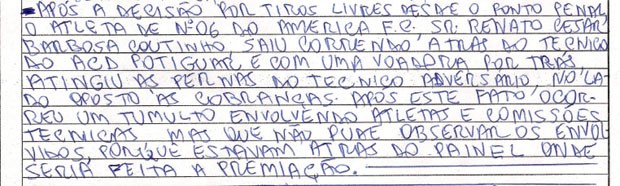 -APÓS A DECISÃO POR TIROS LIVRES DESDE O PONTO PENAL,
O ATLETA DE Nº 06 DO AMERICA F.C. SR: RENATO CESAR
BARBOSA COUTINHO SAIU CORRENDO ATRAS DO TECNICO
DO ACD POTIGUAR, E COM UMA VOADORA POR TRÁS,
ATINGIU AS PERNAS DO TECNICO ADVERSARIO, NO LA-
DO OPOSTO AS COBRANÇAS. APÓS ESTE FATO, OCOR-
REU UM TUMULTO ENVOLVENDO ATLETAS E COMISSÕES
TECNICAS, MAS QUE NÃO PUDE OBSERVAR OS ENVOL-
VIDOS, PORQUE ESTAVAM ATRAS DO PAINEL ONDE
SERIA FEITA A PREMIAÇÃO.